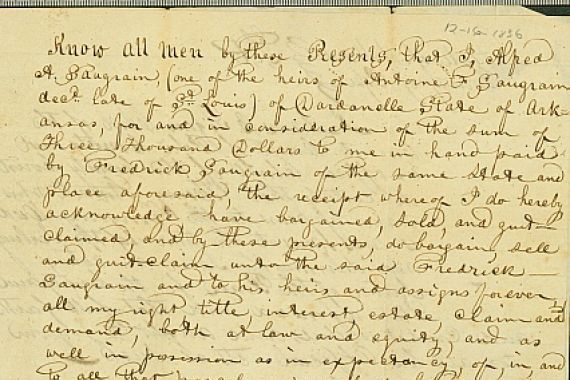 12-16-1836
Know all men by these Presents, that I, Alfred
A. Saugrain (one of the heirs of Antoine F. Saugrain
decd. late of St. Louis) of Dardanelle State of Ark=
ansas, for and in consideration of the sum of
Three Thousand Dollars to me in hand paid
by Fredrick Saugrain of the same State and
place aforesaid, the receipt whereof I do hereby
acknowledge have bargained, sold, and quit-
claimed, and by these presents, do bargain, sell
and quit-claim unto the said Fredrick
Saugrain and to his heirs and assigns forever,
all my right title, interest, estate, claim and
demand, both at law and equity, and as
well in possession as in expectancy, of, in, and
to all that